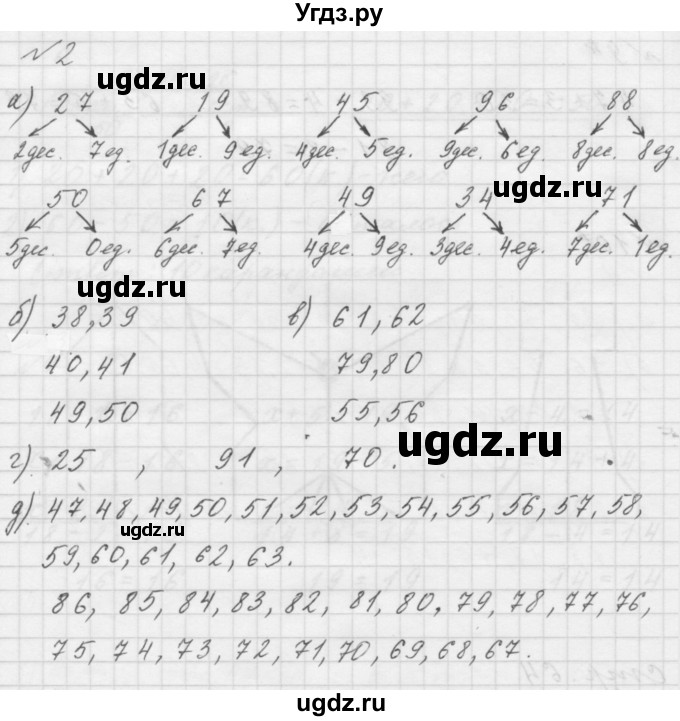 Угдз.ру
№ 2
ugdz.ru
а) 27 19 45 96 88
2дес. 7ед. 1дес. 9ед. 4дес. 5ед. 9дес. 6ед. 8дес. 8ед.
ugdz.ru
50 67 49 34 71
5дес. 0ед. 6дес. 7ед. 4дес. 9ед. 3дес. 4ед. 7дес. 1ед.
ugdz.ru
б) 38, 39 в) 61, 62
40, 41 79, 80
49, 50 55, 56
ugdz.ru
г) 25 , 91 , 70 .
д) 47, 48, 49, 50, 51, 52, 53, 54, 55, 56, 57, 58,
ugdz.ru
59, 60, 61, 62, 63.
86, 85, 84, 83, 82, 81, 80, 79, 78, 77, 76,
75, 74, 73, 72, 71, 70, 69, 68, 67.
ugdz.ru